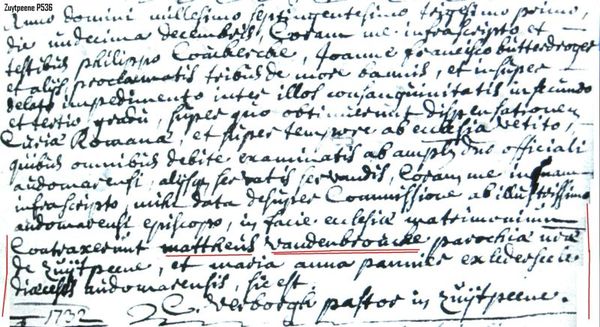 Zuytpeene P536
Anno domini millesimo septingentesimo trigesimo primo,
die undecima decembris, Coram me infrascripto et
testibus philippo Couckercke, Joanne francisco butterdroger
et aliis, proclamatis tribus de more bannis, et insuper
delato impedimento inter illos consanguinitatis in secundo
et tertio gradu, super quo obtinuerunt dispensationem
Curia Romana, et super tempore ab ecclesia vetito,
quibus omnibus debite examinatis ab ampl. dno officiali
audomarensi, aliisq servatis servandis, Coram me
infrascripto, mihi data desuper Commissione ab illustrissimo
audomarensi episcopo, in facie ecclesiæ matrimonium
Contraxerunt mattheus vandenbroucke parochiæ
de Zuijtpeene, et maria anna pannier ex ledersele
diœcesis audomarensis, sic est
1732 verborgh pastor in Zuijtpeene.